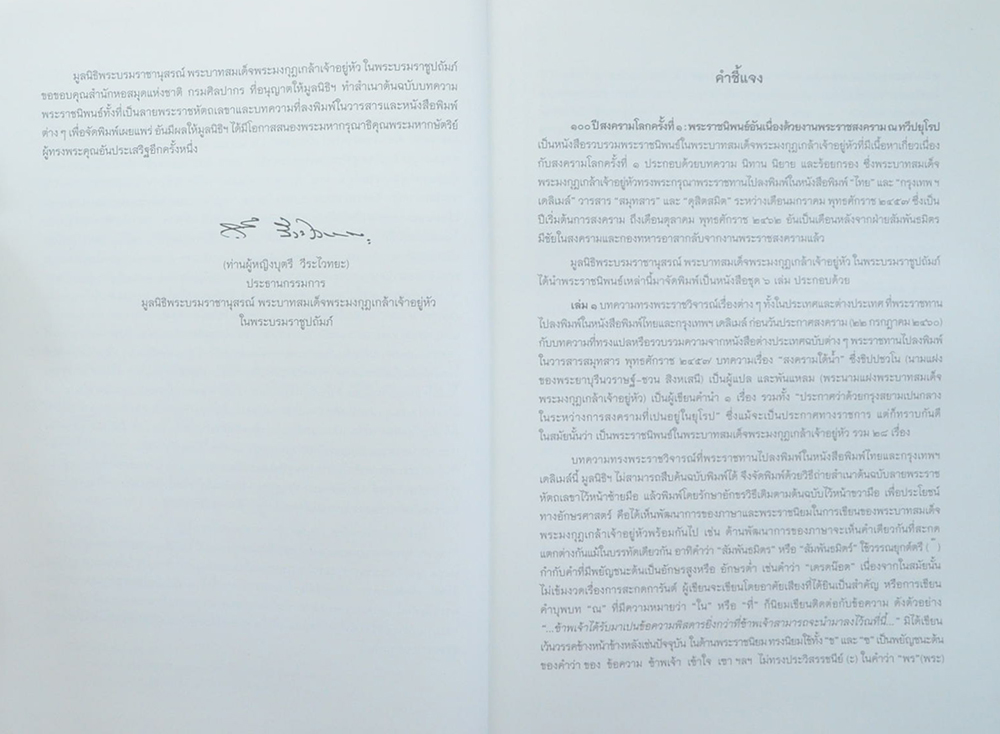 มูลนิธิพระบรมราชานุสรณ์ พระบาทสมเด็จพระมงกุฎเกล้าเจ้าอยู่หัว ในพระบรมราชูปถัมภ์
ขอขอบคุณสำนักหอสมุดแห่งชาติ กรมศิลปากร ที่อนุญาตให้มูลนิธิฯ ทำสำเนาต้นฉบับบทความ
พระราชนิพนธ์ทั้งที่เป็นลายพระราชหัตถเลขาและบทความที่ลงพิมพ์ในวารสารและหนังสือพิมพ์
ต่าง ๆ เพื่อจัดพิมพ์เผยแพร่ อันมีผลให้มูลนิธิฯ ได้มีโอกาสสนองพระมหากรุณาธิคุณพระมหากษัตริย์
ผู้ทรงพระคุณอันประเสริฐอีกครั้งหนึ่ง
(ท่านผู้หญิงบุตรี วีระไวทยะ)
ประธานกรรมการ
มูลนิธิพระบรมราชานุสรณ์ พระบาทสมเด็จพระมงกุฎเกล้าเจ้าอยู่หัว
ในพระบรมราชูปถัมภ์
คำชี้แจง
๑๐๐ ปี สงครามโลกครั้งที่ ๑ : พระราชนิพนธ์อันเนื่องด้วยงานพระราชสงคราม ณ ทวีปยุโรป
เป็นหนังสือรวบรวมพระราชนิพนธ์ในพระบาทสมเด็จพระมงกุฎเกล้าเจ้าอยู่หัวที่มีเนื้อหาเกี่ยวเนื่อง
กับสงครามโลกครั้งที่ ๑ ประกอบด้วยบทความ นิทาน นิยาย และร้อยกรอง ซึ่งพระบาทสมเด็จ
พระมงกุฎเกล้าเจ้าอยู่หัวทรงพระกรุณาพระราชทานไปลงพิมพ์ในหนังสือพิมพ์ “ไทย” และ “กรุงเทพ ฯ
เดลิเมล์” วารสาร “สมุทสาร” และ “ดุสิตสมิต” ระหว่างเดือนมกราคม พุทธศักราช ๒๔๕๗ ซึ่งเป็น
ปีเริ่มต้นการสงคราม ถึงเดือนตุลาคม พุทธศักราช ๒๔๖๒ อันเป็นเดือนหลังจากฝ่ายสัมพันธมิตร
มีชัยในสงครามและกองทหารอาสากลับจากงานพระราชสงครามแล้ว
มูลนิธิพระบรมราชานุสรณ์ พระบาทสมเด็จพระมงกุฎเกล้าเจ้าอยู่หัว ในพระบรมราชูปถัมภ์
ได้นำพระราชนิพนธ์เหล่านี้มาจัดพิมพ์เป็นหนังสือชุด ๖ เล่ม ประกอบด้วย
เล่ม ๑ บทความทรงพระราชวิจารณ์เรื่องต่าง ๆ ทั้งในประเทศและต่างประเทศ ที่พระราชทาน
ไปลงพิมพ์ในหนังสือพิมพ์ไทยและกรุงเทพฯ เดลิเมล์ ก่อนวันประกาศสงคราม (๒๒ กรกฎาคม ๒๔๖๐)
กับบทความที่ทรงแปลหรือรวบรวมความจากหนังสือต่างประเทศฉบับต่าง ๆ พระราชทานไปลงพิมพ์
ในวารสารสมุทสาร พุทธศักราช ๒๔๕๗ บทความเรื่อง “สงครามใต้น้ำ” ซึ่งชิปปชวโน (นามแฝง
ของพระยาบุรีนวราษฐ์-ชวน สิงหเสนี) เป็นผู้แปล และพันแหลม (พระนามแฝงพระบาทสมเด็จ
พระมงกุฎเกล้าเจ้าอยู่หัว) เป็นผู้เขียนคำนำ ๑ เรื่อง รวมทั้ง “ประกาศว่าด้วยกรุงสยามเปนกลาง
ในระหว่างการสงครามที่เปนอยู่ในยุโรป” ซึ่งแม้จะเป็นประกาศทางราชการ แต่ก็ทราบกันดี
ในสมัยนั้นว่า เป็นพระราชนิพนธ์ในพระบาทสมเด็จพระมงกุฎเกล้าเจ้าอยู่หัว รวม ๒๘ เรื่อง
บทความทรงพระราชวิจารณ์ที่พระราชทานไปลงพิมพ์ในหนังสือพิมพ์ไทยและกรุงเทพฯ
เดลิเมล์นี้ มูลนิธิฯ ไม่สามารถสืบค้นฉบับพิมพ์ได้ จึงจัดพิมพ์ด้วยวิธีถ่ายสำเนาต้นฉบับลายพระราช
หัตถเลขาไว้หน้าซ้ายมือ แล้วพิมพ์โดยรักษาอักขรวิธีเดิมตามต้นฉบับไว้หน้าขวามือ เพื่อประโยชน์
ทางอักษรศาสตร์ คือได้เห็นพัฒนาการของภาษาและพระราชนิยมในการเขียนของพระบาทสมเด็จ
พระมงกุฎเกล้าเจ้าอยู่หัวพร้อมกันไป เช่น ด้านพัฒนาการของภาษาจะเห็นคำเดียวกันที่สะกด
แตกต่างกันแม้ในบรรทัดเดียวกัน อาทิคำว่า “สัมพันธมิตร” หรือ “สัมพันธมิตร์” ใช้วรรณยุกต์ตรี ( ๊ )
กำกับคำที่มีพยัญชนะต้นเป็นอักษรสูงหรือ อักษรต่ำ เช่นคำว่า “เดรดน๊อต” เนื่องจากในสมัยนั้น
ไม่เข้มงวดเรื่องการสะกดการันต์ ผู้เขียนจะเขียนโดยอาศัยเสียงที่ได้ยินเป็นสำคัญ หรือการเขียน
คำบุพบท “ณ” ที่มีความหมายว่า “ใน” หรือ “ที่” ก็นิยมเขียนติดต่อกับข้อความ ดังตัวอย่าง
“...ข้าพเจ้าได้รับมาเปนข้อความพิสดารยิ่งกว่าที่ข้าพเจ้าสามารถจะนำมาลงไว้ณที่นี้...” มิได้เขียน
เว้นวรรคข้างหน้าข้างหลังเช่นปัจจุบัน ในด้านพระราชนิยม ทรงนิยมใช้ทั้ง “ฃ” และ “ข” เป็นพยัญชนะต้น
ของคำว่า ของ ข้อความ ข้าพเจ้า เข้าใจ เขา ฯลฯ ไม่ทรงประวิสรรชนีย์ (ะ) ในคำว่า “พร”(พระ)